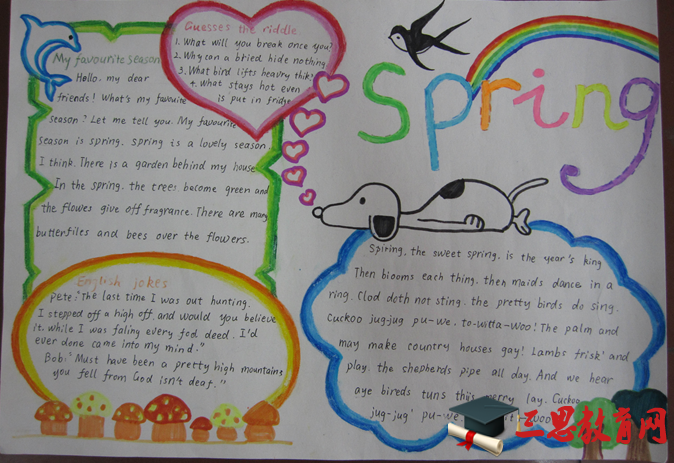 Guesses the riddle
1. What will you break once you?
2. Why can a bried hide nothing
3. What bird lifts heavry
4. What stays hot even
is put in fridge
Spring
My favourite season
Hello, my dear
friends! What's my favoure
season? Let me tell you. My favourite
season is spring. spring is a lovely season,
I think. There is a garden behind my house
In the spring, the trees become green and
the flowes give off fragrance. There are many
butterfiles and bees over the flowers.
English jokes
Pete: "The last time I was out hunting.
I stepped off a high off, and would you believe
it. while I was faling every fod deed. I'd
ever done came into my mind."
Bob: 'Must have been a pretty high mountains
you fell from God isn't deaf."
Spiring, the sweet spring, is the year's king
Then blooms each thing, then maids dance in a
ring. Clod doth not sting. the pretty birds do sing.
Cuckoo jug-jug pu-we, to-witta-woo! The palm and
may make country houses gay! Lambs frisk' and
play. the shepherds pipe all day. And we hear
aye bireds tuns this merry lay. Cuckoo
jug-jug' pu-we
三思教育网